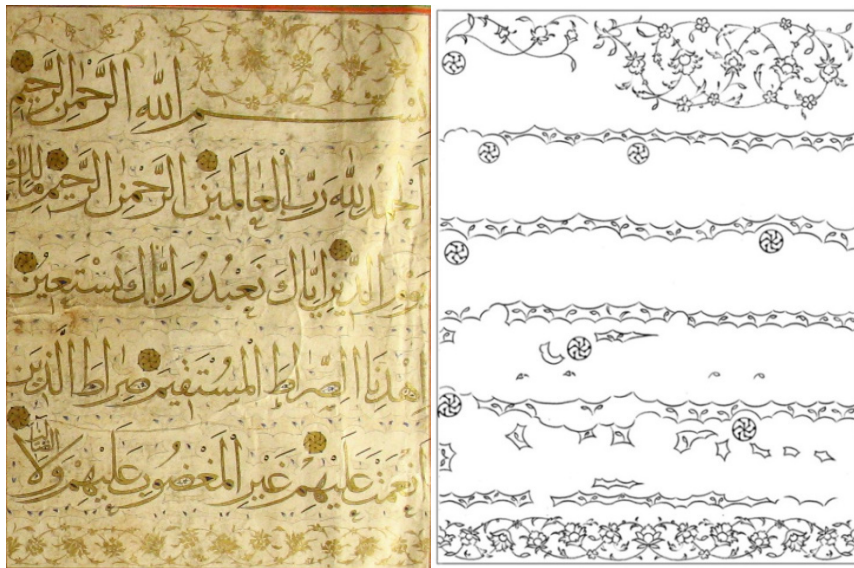 بِسْمِ اللهِ الرَّحْمٰنِ الرَّحِيْمِ
اَلْحَمْدُ لِلّٰهِ رَبِّ الْعَالَمِيْنَ الرَّحْمٰنِ الرَّحِيْمِ مَالِكِ
يَوْمِ الدِّيْنِ اِيَّاكَ نَعْبُدُ وَاِيَّاكَ نَسْتَعِيْنُ
اِهْدِنَا الصِّرَاطَ الْمُسْتَقِيْمَ صِرَاطَ الَّذِيْنَ
اَنْعَمْتَ عَلَيْهِمْ غَيْرِ الْمَغْضُوبِ عَلَيْهِمْ وَلَا
الضَّالِّيْنَ